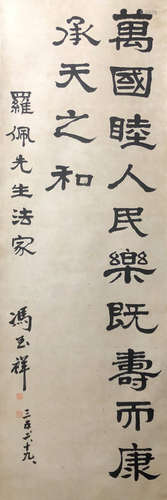 萬國睦人民樂既壽而康
承天之和
羅佩先生法家
馮玉祥